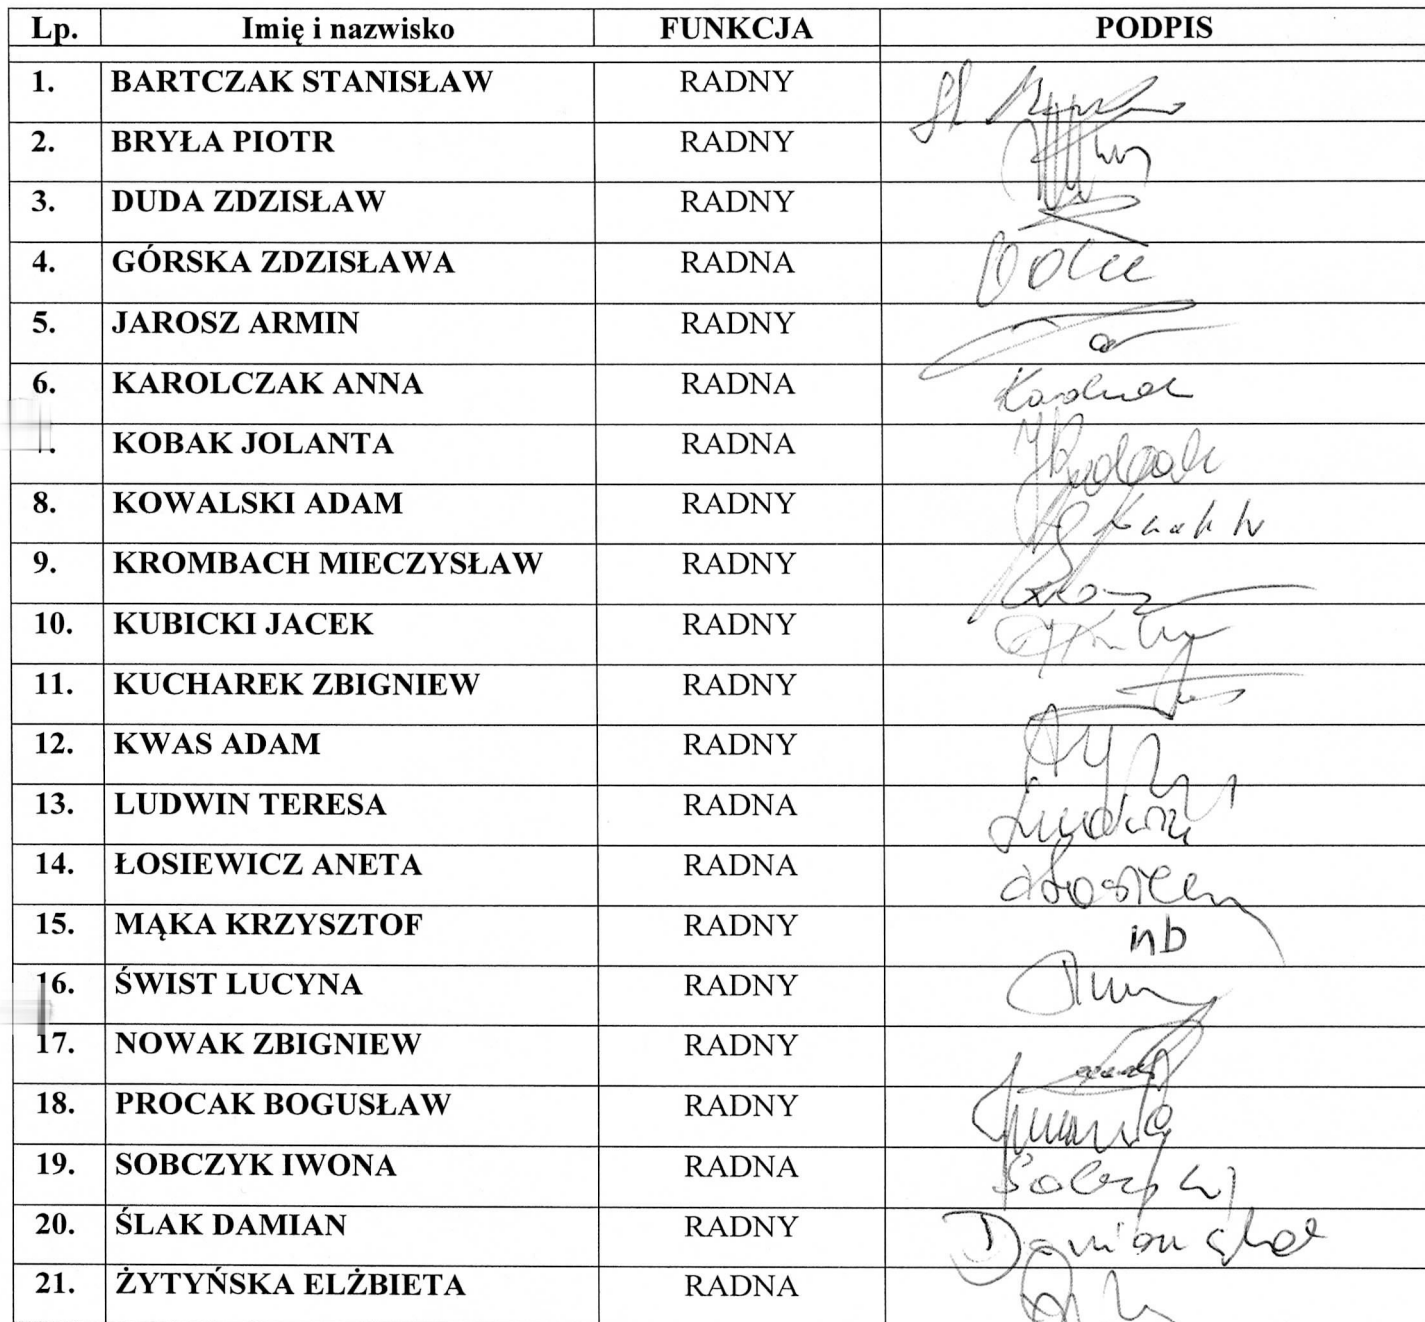 Lp. Imię i nazwisko FUNKCJA PODPIS
1. BARTCZAK STANISŁAW RADNY
2. BRYŁA PIOTR RADNY
3. DUDA ZDZISŁAW RADNY
4. GÓRSKA ZDZISŁAWA RADNA
5. JAROSZ ARMIN RADNY
6. KAROLCZAK ANNA RADNA
KOBAK JOLANTA RADNA
8. KOWALSKI ADAM RADNY
9. KROMBACH MIECZYSŁAW RADNY
10. KUBICKI JACEK RADNY
11. KUCHAREK ZBIGNIEW RADNY
12. KWAS ADAM RADNY
13. LUDWIN TERESA RADNA Ludwin
14. ŁOSIEWICZ ANETA RADNA
15. MĄKA KRZYSZTOF RADNY nb
16. ŚWIST LUCYNA RADNY
17. NOWAK ZBIGNIEW RADNY
18. PROCAK BOGUSŁAW RADNY
19. SOBCZYK IWONA RADNA
20. ŚLAK DAMIAN RADNY Damian
21. ŻYTYŃSKA ELŻBIETA RADNA